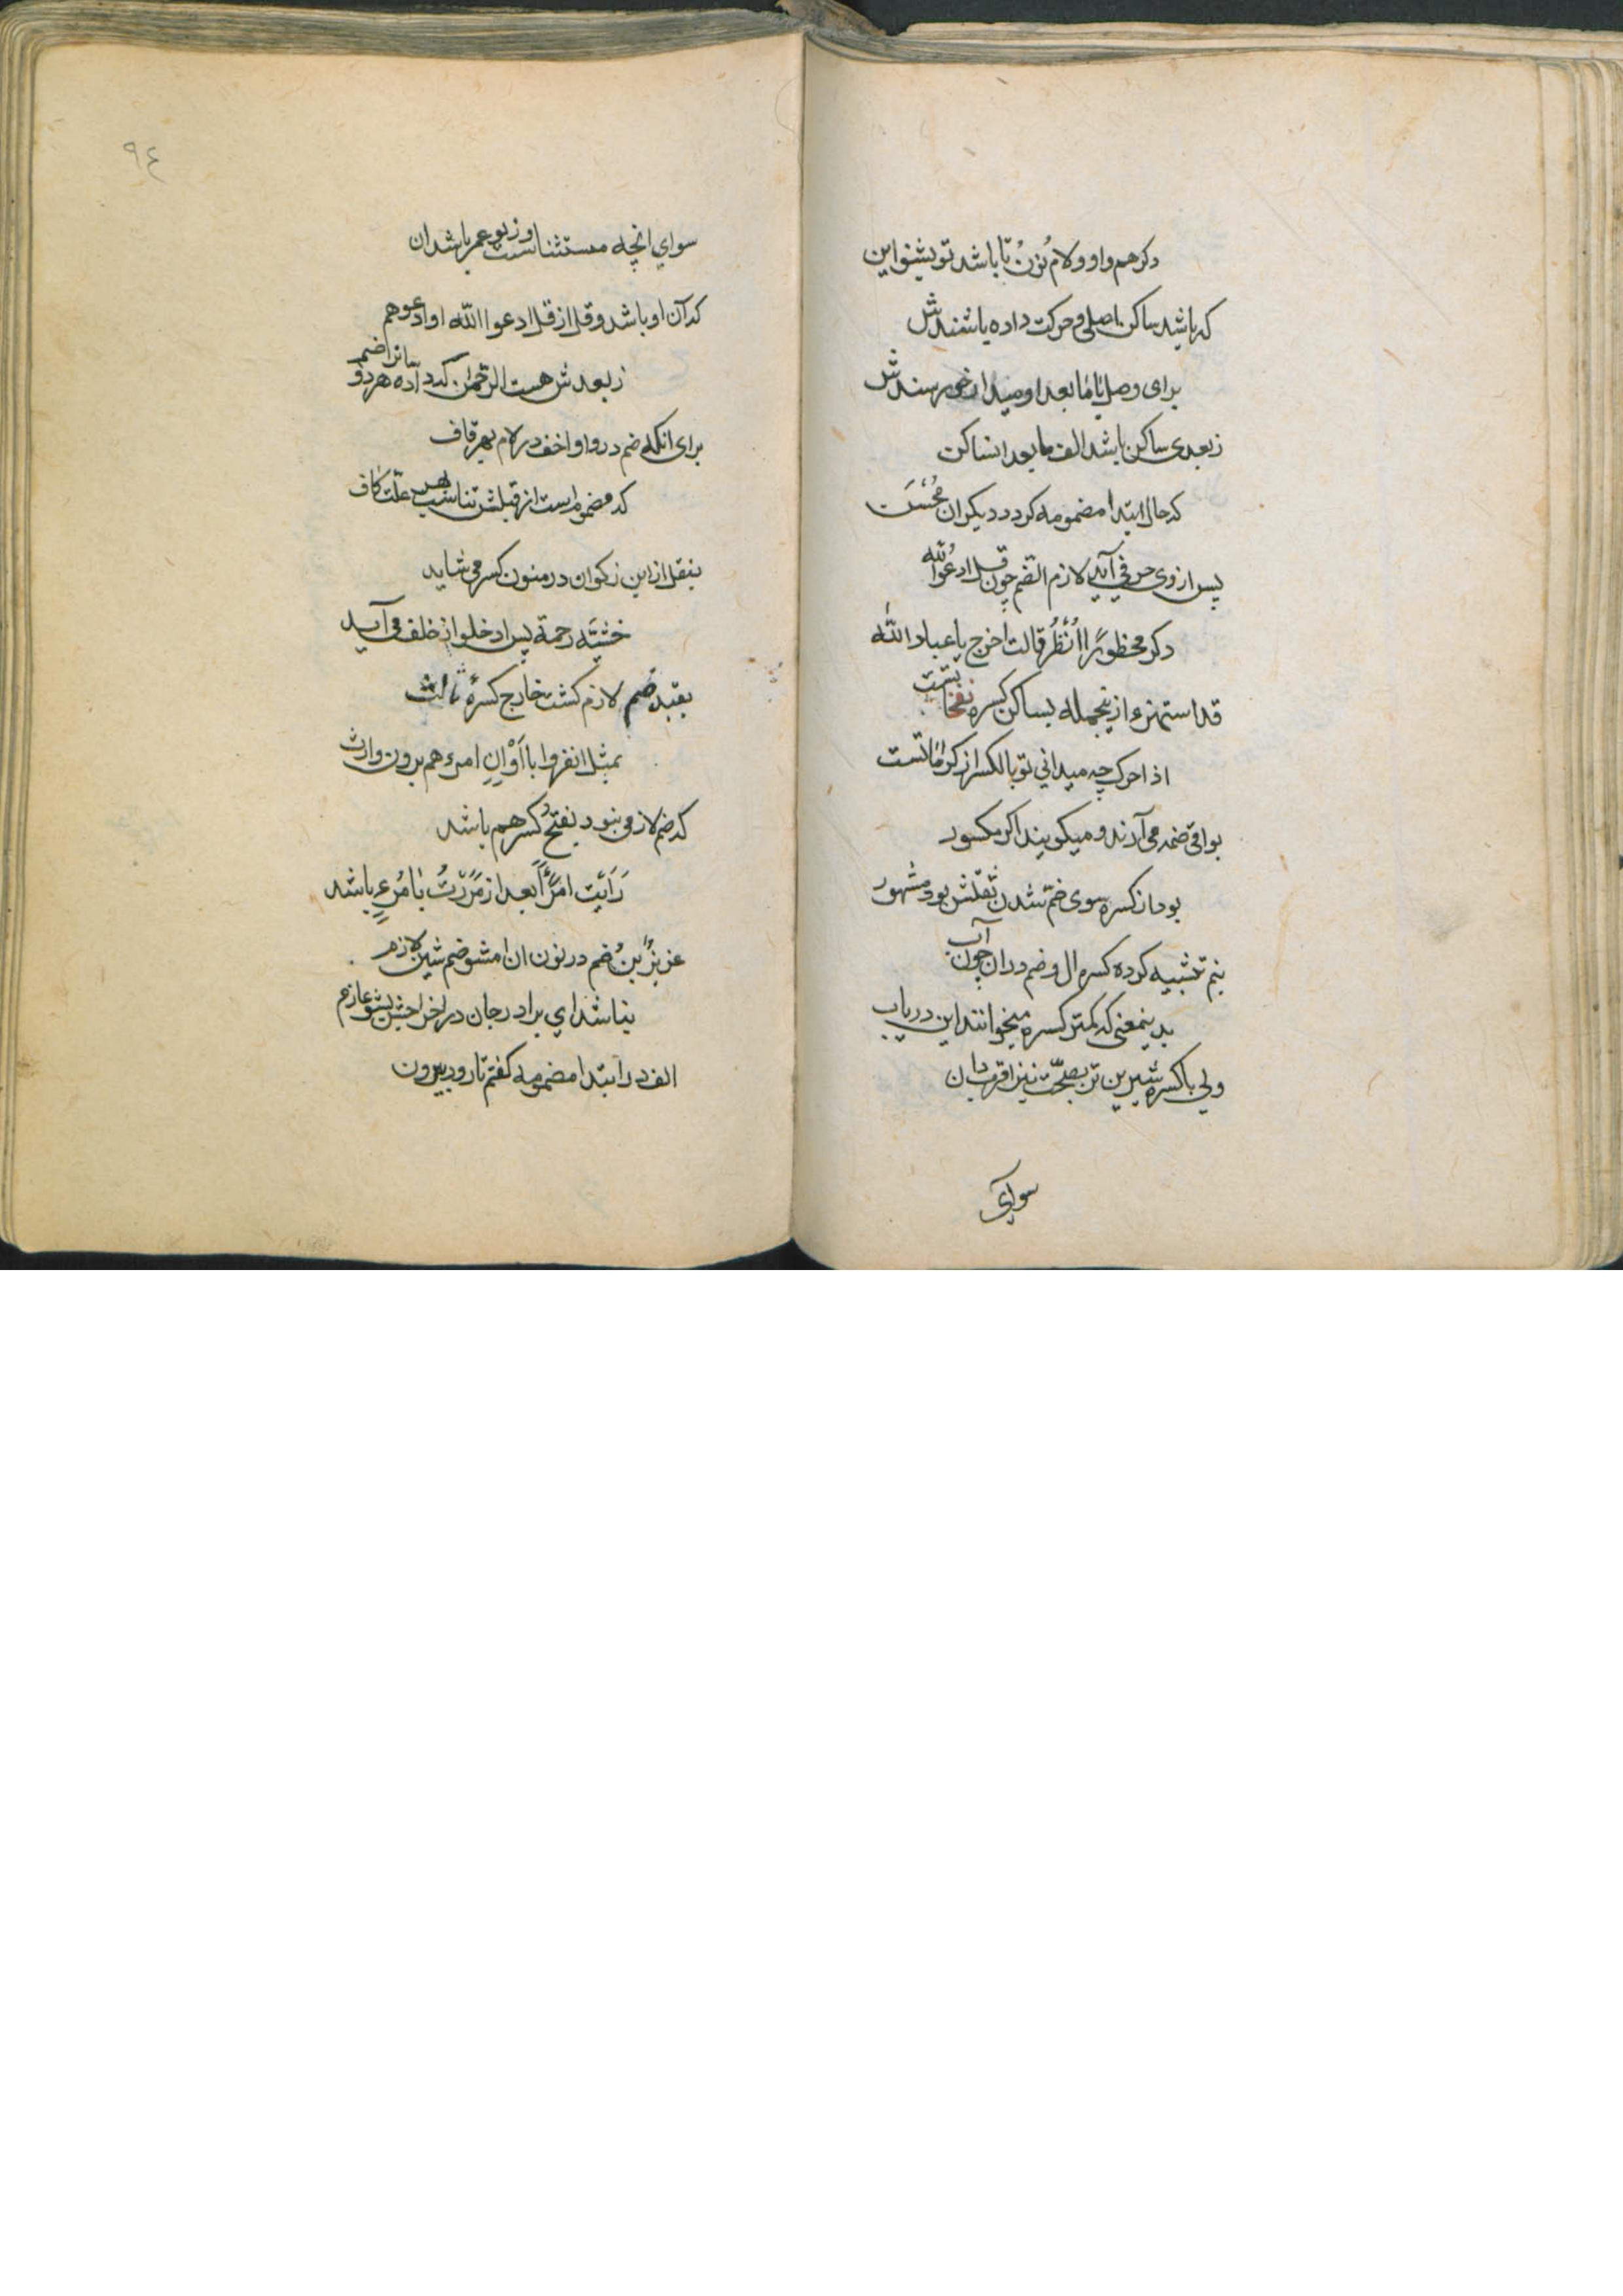 دكر هم واو ولام نون تا باشد تو بشنو اين
كه باشد ساكن اصلي و حركت داده باشندش
براى وصل با ما بعد او
ز بعدى ساكن باشد الف ما بعد ان ساكن
كه حال ابتدا مضمومه كردد ديكران
پس از وى حرفي آيد لازم الضم چون قل ادعوا الله
دكر محظورًا اُنْظُر قالت اخرج يا عباد الله
قد استهزء ازينجمله بساكن كسره
اذا حرك چه ميداني تو بالكسر از
بواقي ضمه مى آرند و ميكويند اكر مكسور
بود از كسره سوى ضم شدن ثقلش بود مشهور
بنم تشبيه كرده كسره ال و ضم دران چون آب
بدينمعنى كه كمتر كسره ميخوانند اين درياب
ولي با كسره شيرين تر بصحّت نيز اقرب دان
سواي
٩٤
سواي انچه مستثناست و ز بو عمر باشد ان
كه آن او باشد و قل از قل ادعوا الله او ادعوا هم
ز بعدش هست الرحمن
براى انكه ضم در واو اخف در لام بهر قاف
كه مضموم است از قبلش تناسب علت كاف
بنقل از ابن ذكوان در منون كسر مى شايد
خبيثه رحمة پس ادخلوا از خلف مى آيد
بقيد ضم لازم كشت خارج كسرهٔ ثالث
بمثل انفروا با اَوْ اِنِ امرء هم برون وارث
كه ضم لازمى نبود بفتح و كسر هم باشد
رَاَيت امرَأً بعد از مَرَرْتُ بامرِءٍ باشد
عزيرٌ بنُ ضم در نون ان امشو ضم شين لازم
نباشد اي برادر جان در
الف در ابتدا مضمومه كفتم تا رود بيرون